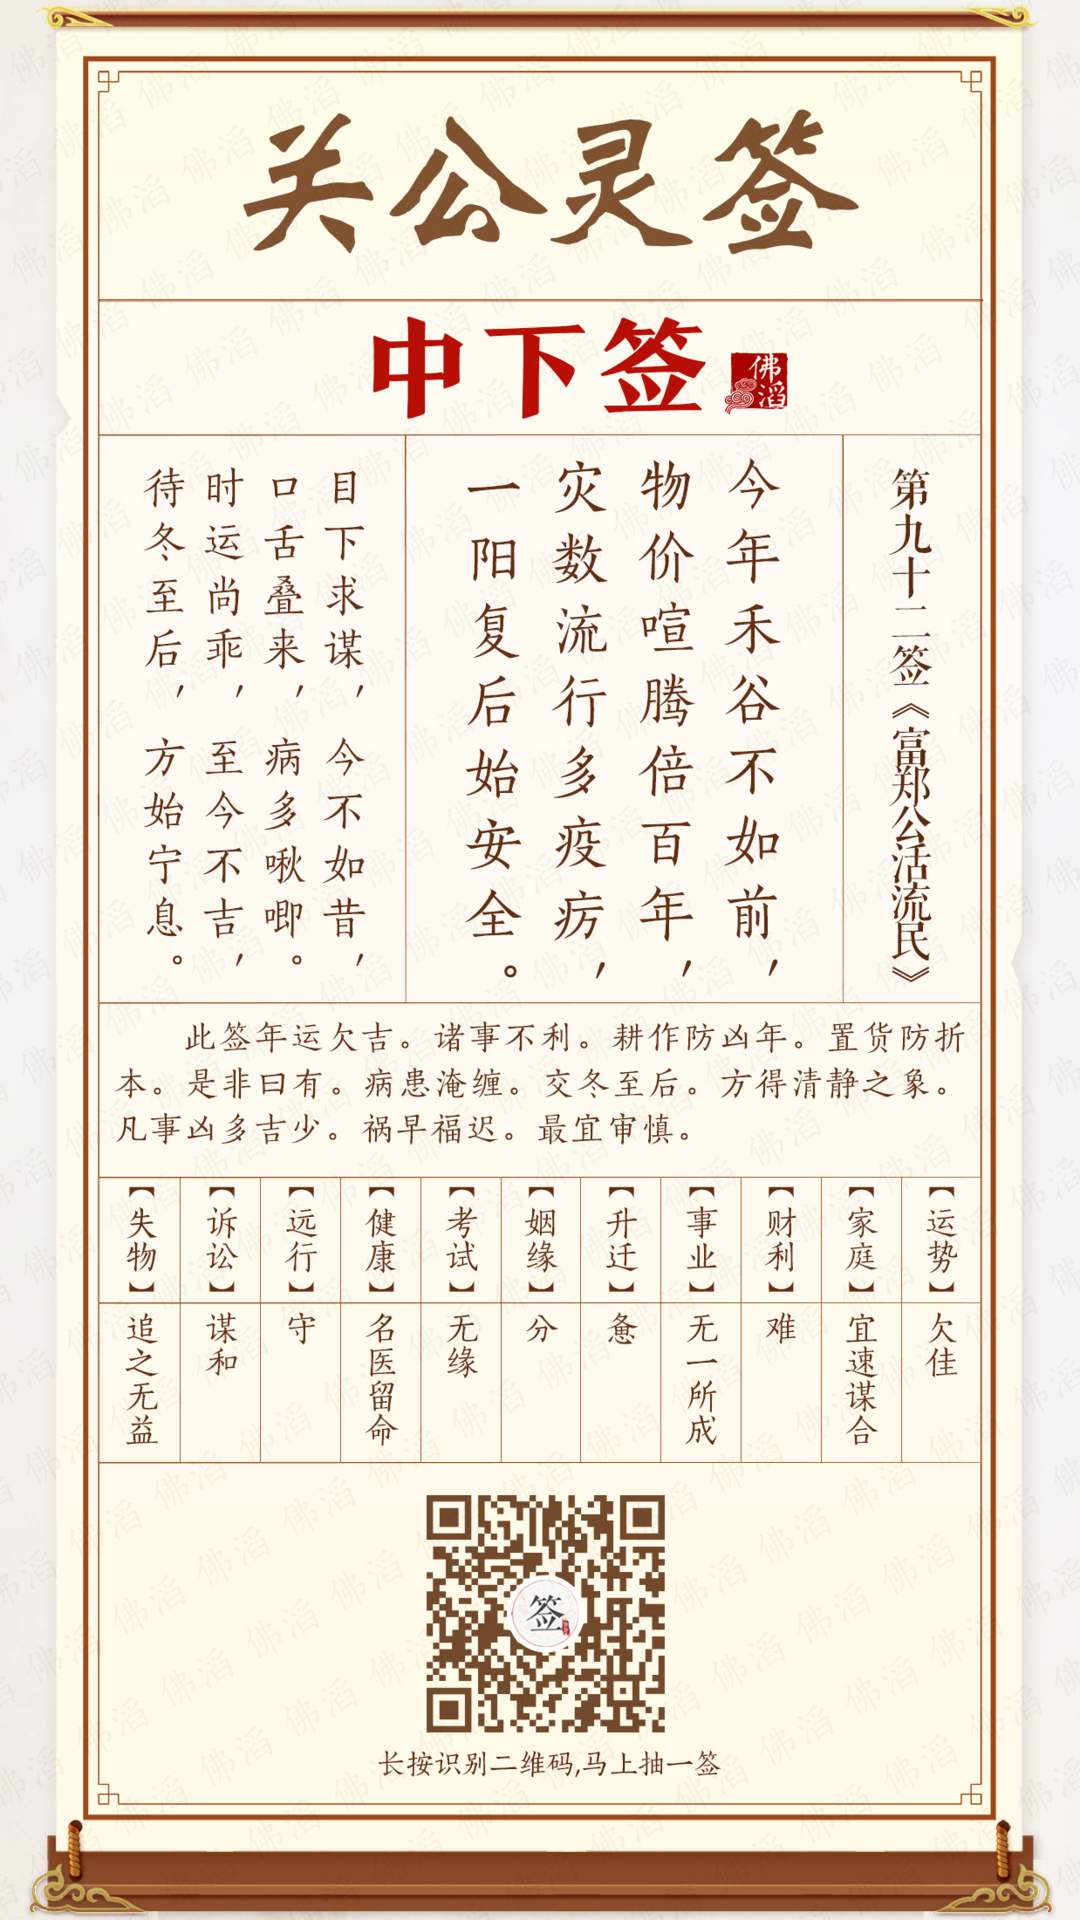 关公灵签
中下签
佛滔
第九十二签《富郑公活流民》
今年禾谷不如前，
物价喧腾倍百年，
灾数流行多疫疠，
一阳复后始安全。
目下求谋，今不如昔，
口舌叠来，病多啾唧。
时运尚乖，至今不吉，
待冬至后，方始宁息。
此签年运欠吉。诸事不利。耕作防凶年。置货防折
本。是非曰有。病患淹缠。交冬至后。方得清静之象。
凡事凶多吉少。祸早福迟。最宜审慎。
【运势】
欠佳
【家庭】
宜速谋合
【财利】
难
【事业】
无一所成
【升迁】
惫
【姻缘】
分
【考试】
无缘
【健康】
名医留命
【远行】
守
【诉讼】
谋和
【失物】
追之无益
签
长按识别二维码,马上抽一签